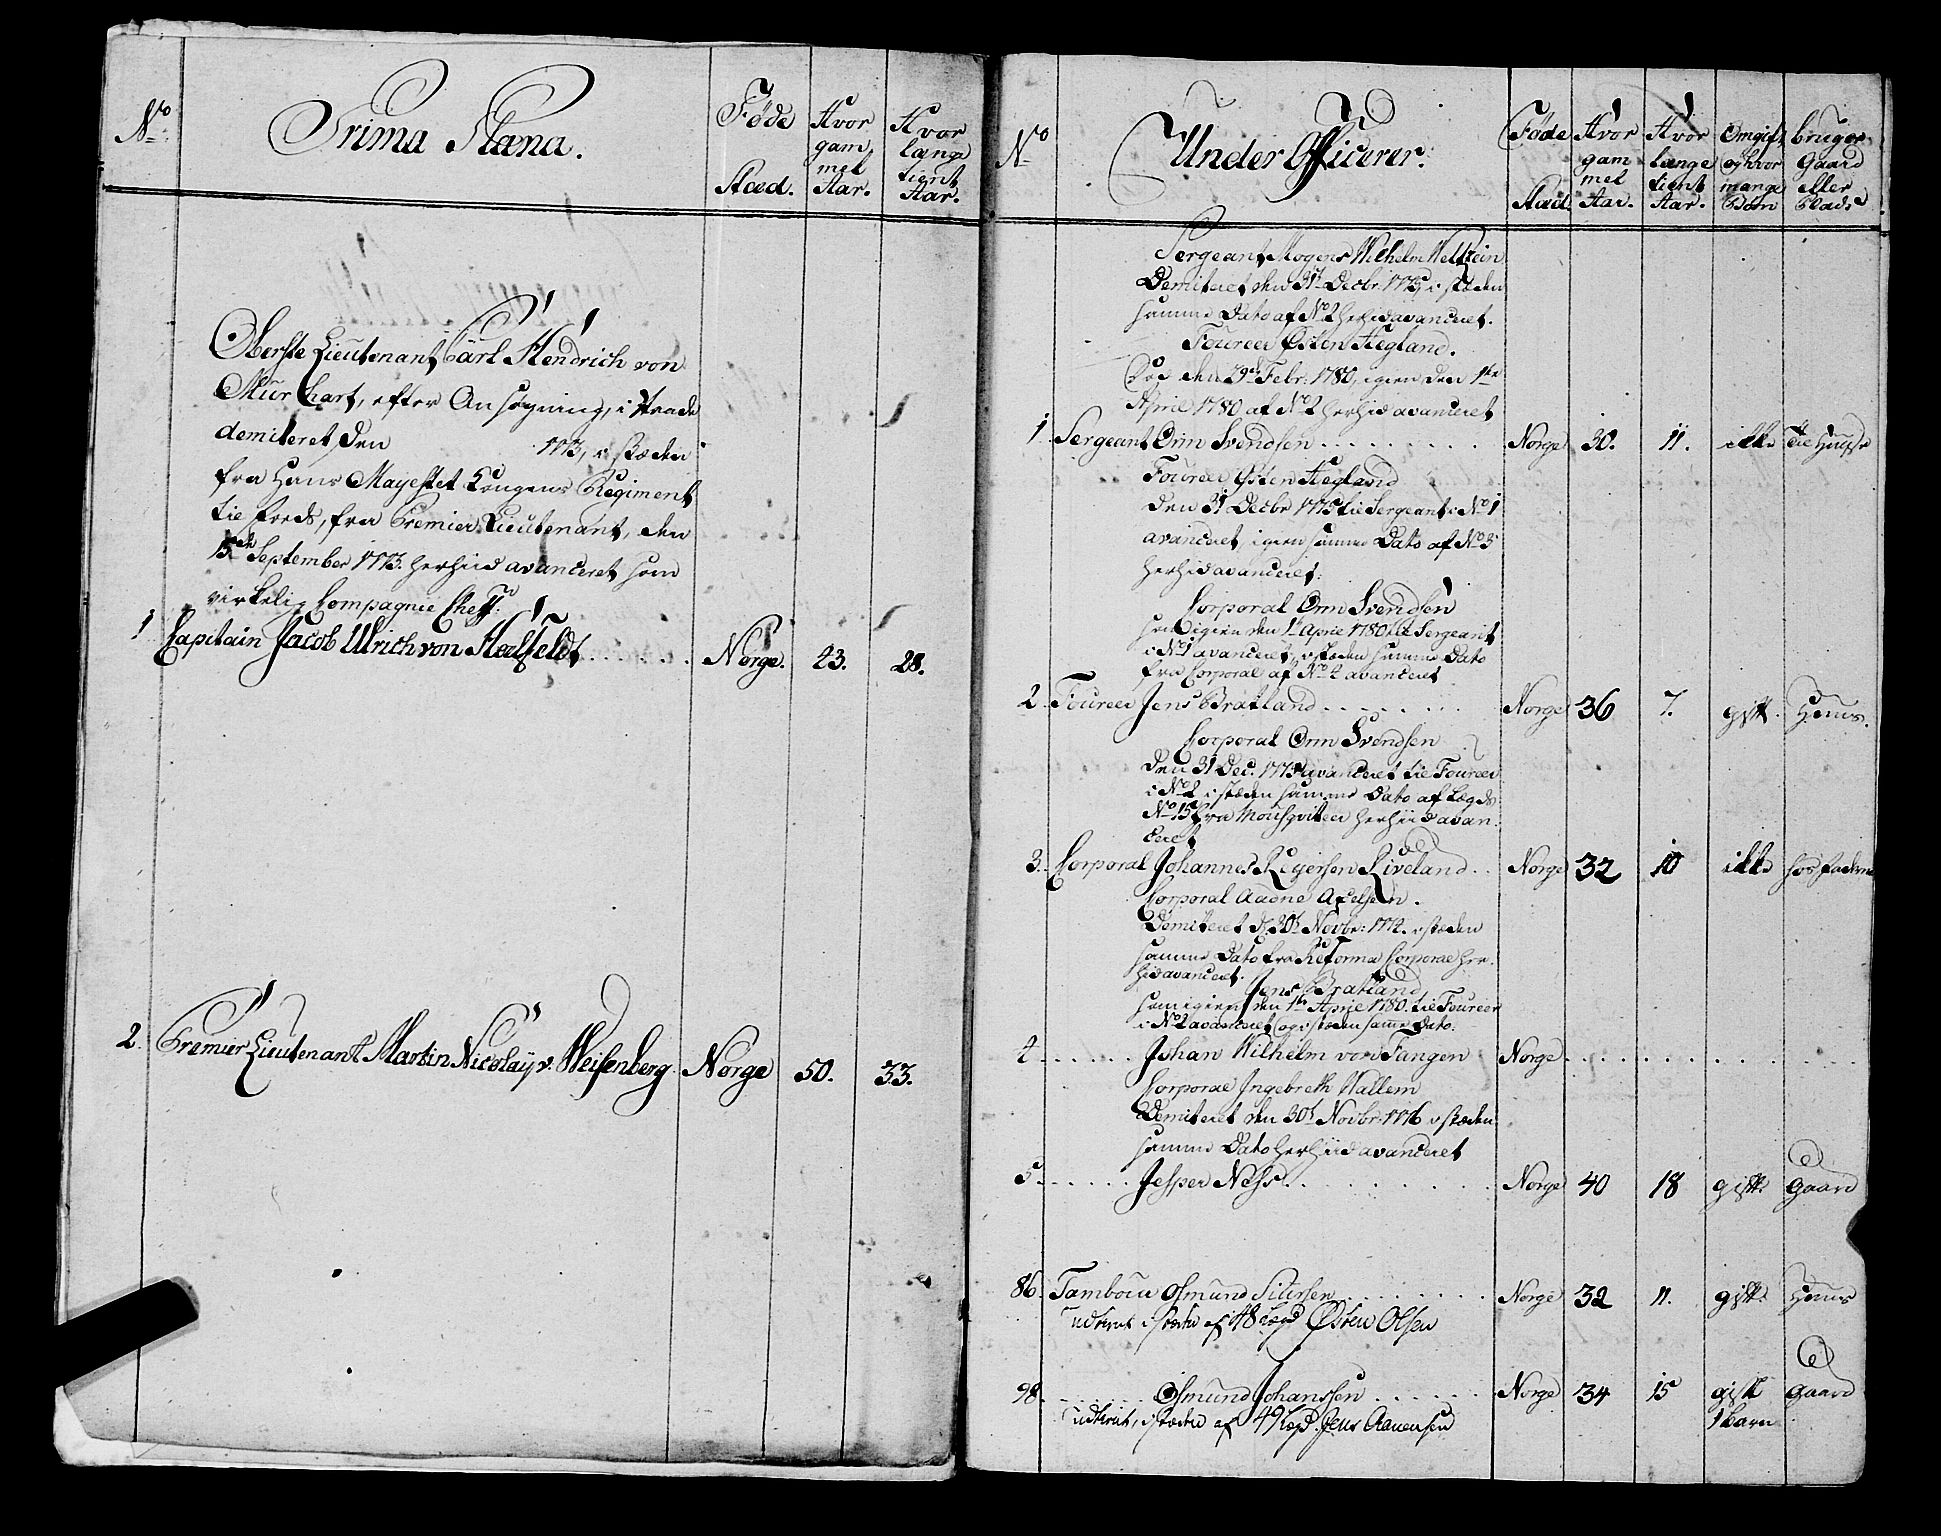 No
Prima Plæna.
Føde
Stæd.
Hvor
gam
mel
Aar.
Hvor
længe
tient
Aar.
Oberste Lieutenant Carl Hendrich von
Murchart, efter Ansøgning, i Naade
demiteret den 1773, i stæden
fra Hans Mayestet Kongens Regiment
til foeds, fra Premier Lieutenant, den
15de September 1773. herhiid avanceret som
virkelig Compagnie Cheff:
1 Capitain Jacob Ulrich von Halfeldt Norge. 43. 28.
2. Premier Lieutenant Martin Nicolaÿ v. Weisenberg Norge 50. 33.
No
Under Officerer.
Føde
Stæd.
Hvor
gam
mel
Aar.
Hvor
længe
tient
Aar.
Om gift
og hvor
mange
Børn
bruger
Gaard
eller
Plads
Sergeant Mogens Wilhelm Weltzein
Demiteret den 31te Decbr. 1775, i stæden
samme Dato af No 2 herhid avanceret.
Foureer Østen Hegland.
Døe den 29de Febr: 1780, igien den 1ste
April 1780 af No 2 herhid avanceret
1 Sergeant Orm Svendsen Norge 30. 11. ikke til Huuse
Foureer Østen Hegland
den 31 Decbr 1775 til Sergeant i No 1
avanceret, igien samme Dato af No 3
herhid avanceret.
Corporal Orm Svendsen
som igien den 1ste April 1780 til Sergeant
i No 1 avanceret, i stæden samme Dato
fra Corporal af No 4 avanceret
2. Foureer Jens Bratland Norge 36 7. gift. Huus.
Corporal Orm Svendsen
den 31 Dec. 1775 avanceret til Foureer
i No 2 i stæden samme Dato af Lægds
No 15 fra Mousqviteer herhiid avan-
ceret
3. Corporal Johannes Reiersen Riveland Norge 32 10 ikke hos faderen
Corporal Aadne Axelsen.
Demiteret d. 30te Novbr: 1772. i stæden
samme Dato fra Reforma Corporal her-
hid avanceret.
Jens Bratland
som igien den 1ste April 1780. til Foureer
i No 2 avanceret og i stæden samme Dato.
4 Johan Wilhelm von Tangen Norge
Corporal Ingebreth Wallem
Demiteret den 30te Novbr: 1776 i stæden
samme Dato herhiid avanceret
5. Jesper Næss Norge 40 18 gift. Gaard
86. Tambour Osmund Siversen Norge 32 11. gift. Huus
udtient i stæden af 48 Lægd Østen Olsen
98. Osmund Johanssen Norge 34 15 gift Gaard
udtient, i stæden af 49 Lægd. Jens Aanensen 1 barn